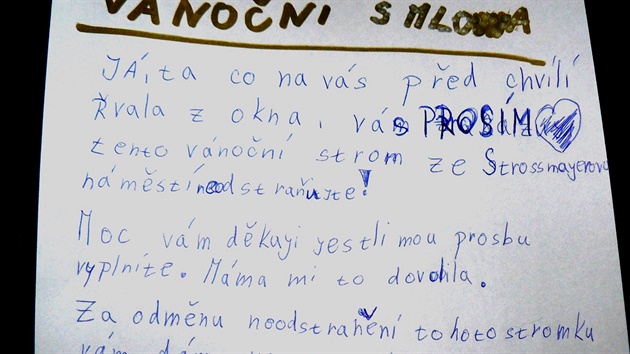 VÁNOČNÍ SMLOUVA
JÁ, ta co na vás před chvílí
řvala z okna, vás PROSÍM
tento vánoční strom ze Strossmayerova
náměstí neodstraňujte!
Moc vám děkuji jestli mou prosbu
vyplníte. Máma mi to dovolila.
Za odměnu neodstranění tohoto stromku
vám dám